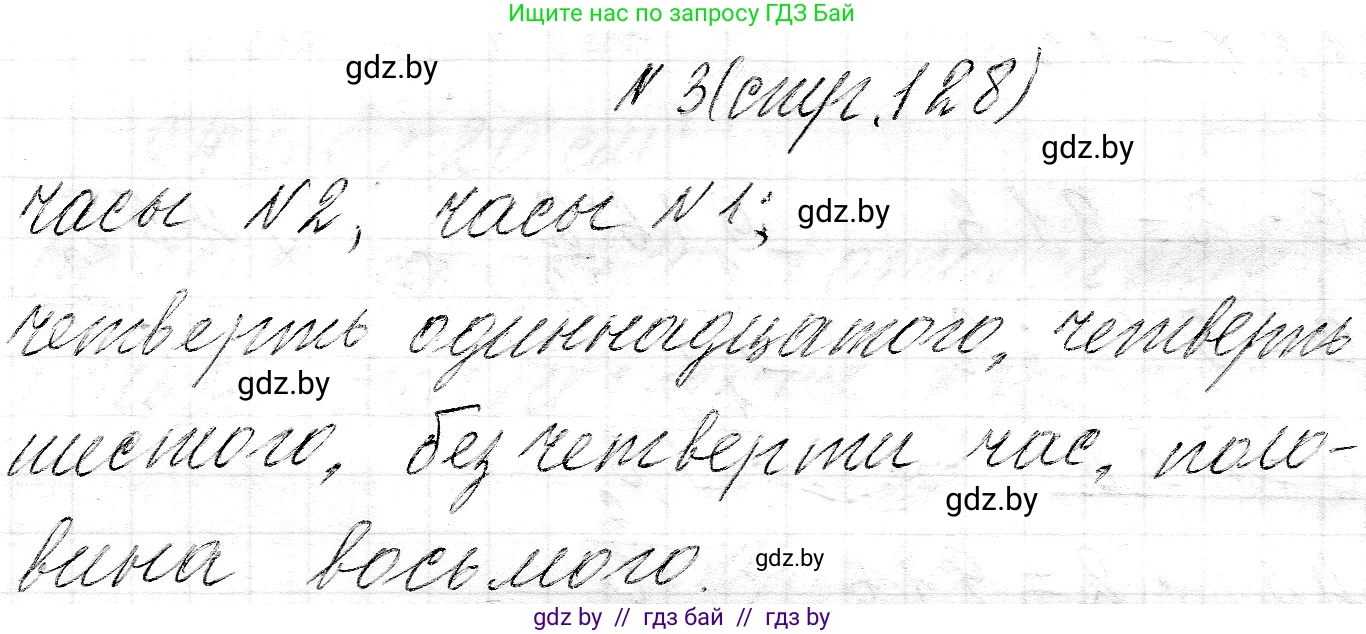 Ищите нас по запросу ГДЗ Бай
gdz.by
N 3(стр.128)
gdz.by
часы N2, часы N1;
gdz.by
четверть одиннадцатого, четверть
gdz.by
шестого, без четверти час, поло-
gdz.by
вина восьмого.
gdz.by
gdz by // гдз бай // гдз by